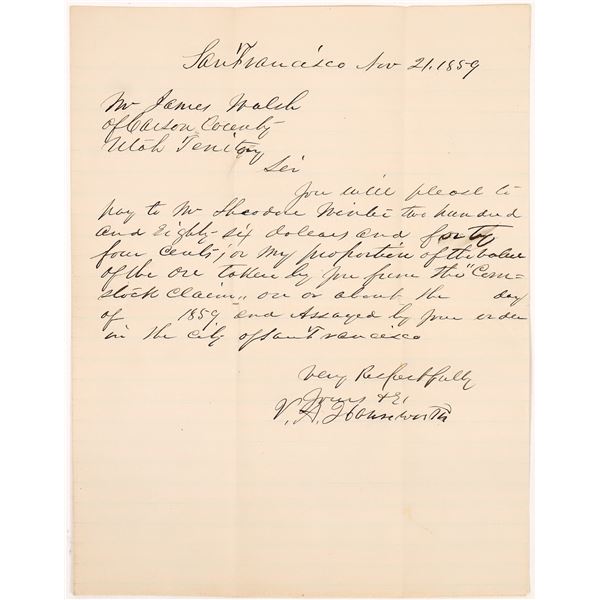 San Francisco Nov 21. 1859
Mr James Walsh
of Carson County
Utah Teritory
Sir
You will please to
pay to Mr Theodore Winter two hundred
and Eighty-six dolears and forty
four cents; or my proportion of the value
of the ore taken by you from the "Com-
stock claim" on or about the day
of 1859 and Assayed by your order
in the city of San Francisco
Very Respectfully
Yours &c
V. A. Houseworth